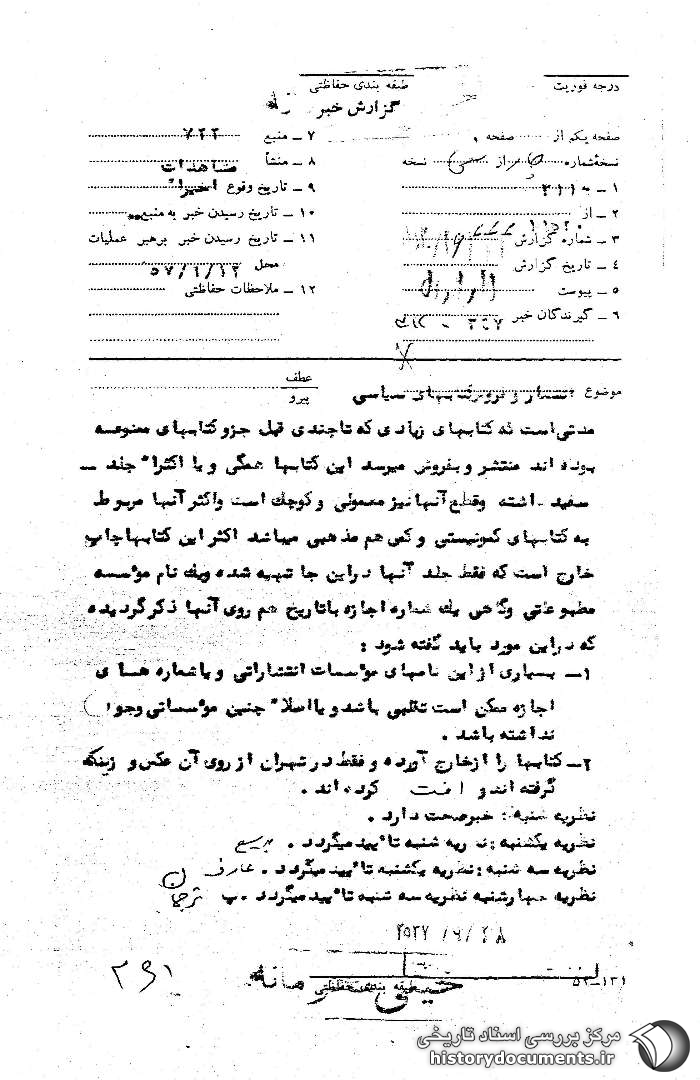 درجه فوریت
طبقه بندی حفاظتی
گزارش خبر
صفحه یکم از صفحه
نسخهٔ شماره از نسخه
۱ ـ به ۳۱۱
۲ ـ از
۳ ـ شماره گزارش
۴ ـ تاریخ گزارش
۵ ـ پیوست
۶ ـ گیرندگان خبر
۷ ـ منبع ۷۲۲
۸ ـ منشأ مشاهدات
۹ ـ تاریخ وقوع اخیرا
۱۰ ـ تاریخ رسیدن خبر به منبع
۱۱ ـ تاریخ رسیدن خبر برهبر عملیات
محل
۱۲ ـ ملاحظات حفاظتی
موضوع انتشار و فروش کتابهای سیاسی
عطف
پیرو
مدتی است که کتابهای زیادی که تا چندی قبل جزو کتابهای ممنوعه
بوده اند منتشر و بفروش میرسد این کتابها همگی و یا اکثرا" جلد ــ
سفید داشته وقطع آنها نیز معمولی و کوچک است و اکثر آنها مربوط
به کتابهای کمونیستی و گاهی هم مذهبی میباشد اکثر این کتابها چاپ
خارج است که فقط جلد آنها در این جا تهیه شده و یک نام مؤسسه
مطبوعاتی و گاهی یک شماره اجازه با تاریخ هم روی آنها ذکر گردیده
که در این مورد باید گفته شود :
۱ــ بسیاری از این نامهای مؤسسات انتشاراتی و یا شماره هسای
اجازه ممکن است تقلبی باشد و یا اصلا" چنین مؤسساتی وجود
نداشته باشد .
۲ــ کتابها را از خارج آورده و فقط در تهران از روی آن عکس و زینک
گرفته اند و افست کرده اند .
نظریه شنبه : خبر صحت دارد .
نظریه یکشنبه : نظریه شنبه تائید میگردد .
نظریه سه شنبه : نظریه یکشنبه تائید میگردد . عارف
نظریه چهارشنبه نظریه سه شنبه تائید میگردد . پ ترجمان
۲۵۳۷/۶/۲۸
۳۶۱
طبقه بندی حفاظتی
خیلی محرمانه
۵۲ــ۱۳۱
مرکز بررسی اسناد تاریخی
historydocuments.ir